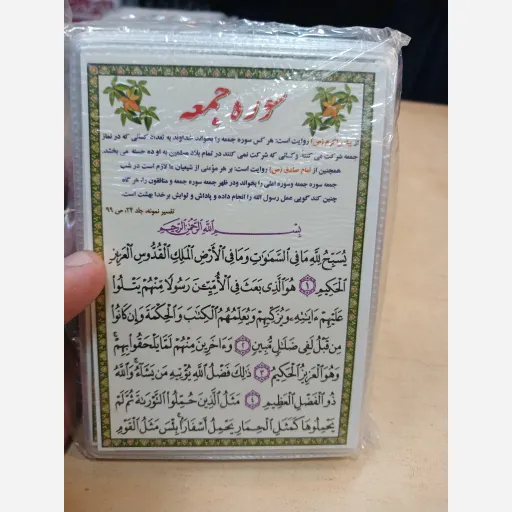 سوره جمعه
از پیامبر اکرم (ص) روایت است: هر کس سوره جمعه را بخواند خداوند به تعداد کسانی که در نماز
جمعه شرکت می کنند و کسانی که شرکت نمی کنند در تمام بلاد مسلمین به او ده حسنه می بخشد.
همچنین از امام صادق (ص) روایت است: بر هر مؤمنی از شیعیان ما لازم است در شب
جمعه سوره جمعه و سوره اعلی را بخواند و در ظهر جمعه سوره جمعه و منافقون را، هر گاه
چنین کند گویی عمل رسول الله را انجام داده و پاداش و ثوابش بر خدا بهشت است.
تفسیر نمونه، جلد ۲۴، ص ۹۹
بِسْمِ اللَّهِ الرَّحْمَنِ الرَّحِيمِ
يُسَبِّحُ لِلَّهِ مَا فِي السَّمَوَاتِ وَمَا فِي الْأَرْضِ الْمَلِكِ الْقُدُّوسِ الْعَزِيزِ
الْحَكِيمِ ۝١ هُوَ الَّذِي بَعَثَ فِي الْأُمِّيِّينَ رَسُولًا مِنْهُمْ يَتْلُوا
عَلَيْهِمْ ءَايَٰتِهِ وَيُزَكِّيهِمْ وَيُعَلِّمُهُمُ الْكِتَٰبَ وَالْحِكْمَةَ وَإِن كَانُوا
مِن قَبْلُ لَفِي ضَلَٰلٍ مُّبِينٍ ۝٢ وَءَاخَرِينَ مِنْهُمْ لَمَّا يَلْحَقُوا بِهِمْ
وَهُوَ الْعَزِيزُ الْحَكِيمُ ۝٣ ذَٰلِكَ فَضْلُ اللَّهِ يُؤْتِيهِ مَن يَشَاءُ وَاللَّهُ
ذُو الْفَضْلِ الْعَظِيمِ ۝٤ مَثَلُ الَّذِينَ حُمِّلُوا التَّوْرَىٰةَ ثُمَّ لَمْ
يَحْمِلُوهَا كَمَثَلِ الْحِمَارِ يَحْمِلُ أَسْفَارًا بِئْسَ مَثَلُ الْقَوْمِ